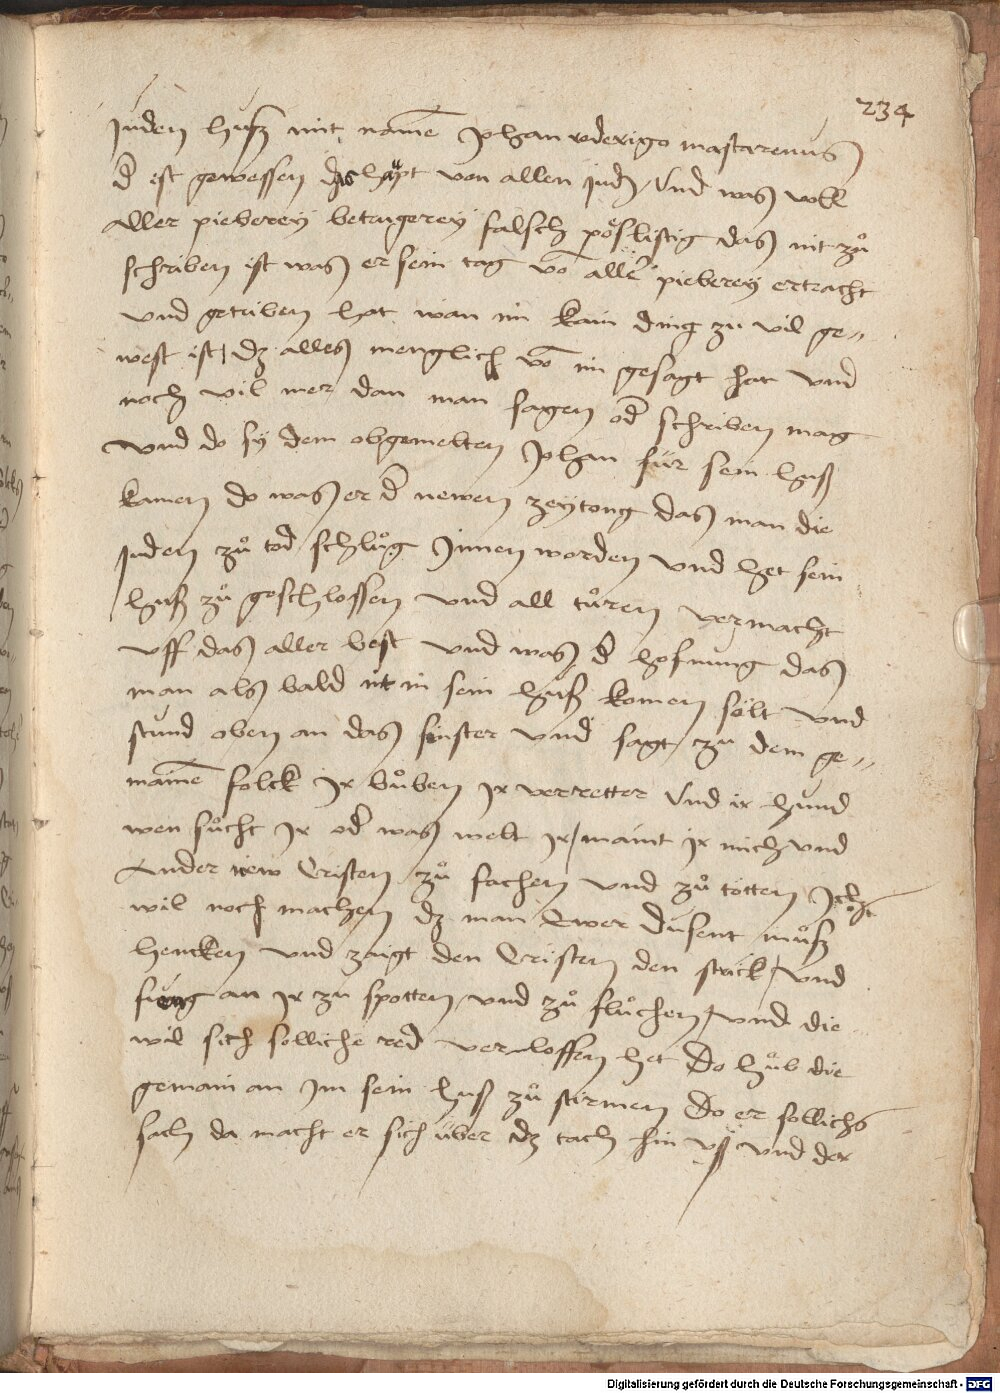 234
Juden huß mit namē Johan roderigo mastarenus
d' est gewessen das haͤpt von allen Jud' / Und was voll
aller pieberey betrugerey falsch poͤslistig das nit zuͦ
schriben ist was er sein tag vō aller pieberey ertracht
und getriben hat wan im kain ding zu vil ge〃
west ist / dz alles menglich vō im gesagt hat und
noch vil mer dan man sagen od' schriben mag
und do sy dem obgemelten Johan für sein huß
kamen do was er d' newen zeytong das man die
Juden zuͦ tod schluͦg Innen worden und het sein
huß zuͦ geschlossen und all türen vermacht
uff das aller best und was d' hofnung das
man als bald nit in sein huß komen sölt und
stund oben an das finster und sagt zu dem ge〃
mainē folck Ir buͦben Ir verretter Und ir hund
wen suͦcht Ir od' was welt Ir / maint Ir mich und
Ander new Cristen zuͦ fachen und zuͦ tötten Ich
wil noch machen dz man Ewer dusent muͦß
hencken und zaigt den Cristen den strick / und
fieng an Ir zu spotten und zuͦ fluͦchen / und die
wil sich solliche red verloffen het Do huͦb die
gemain an Im sein huß zuͦ stirmen Do er sollichs
sach da macht er sich über dz tach hin uß und der
Digitalisierung gefördert durch die Deutsche Forschungsgemeinschaft - DFG